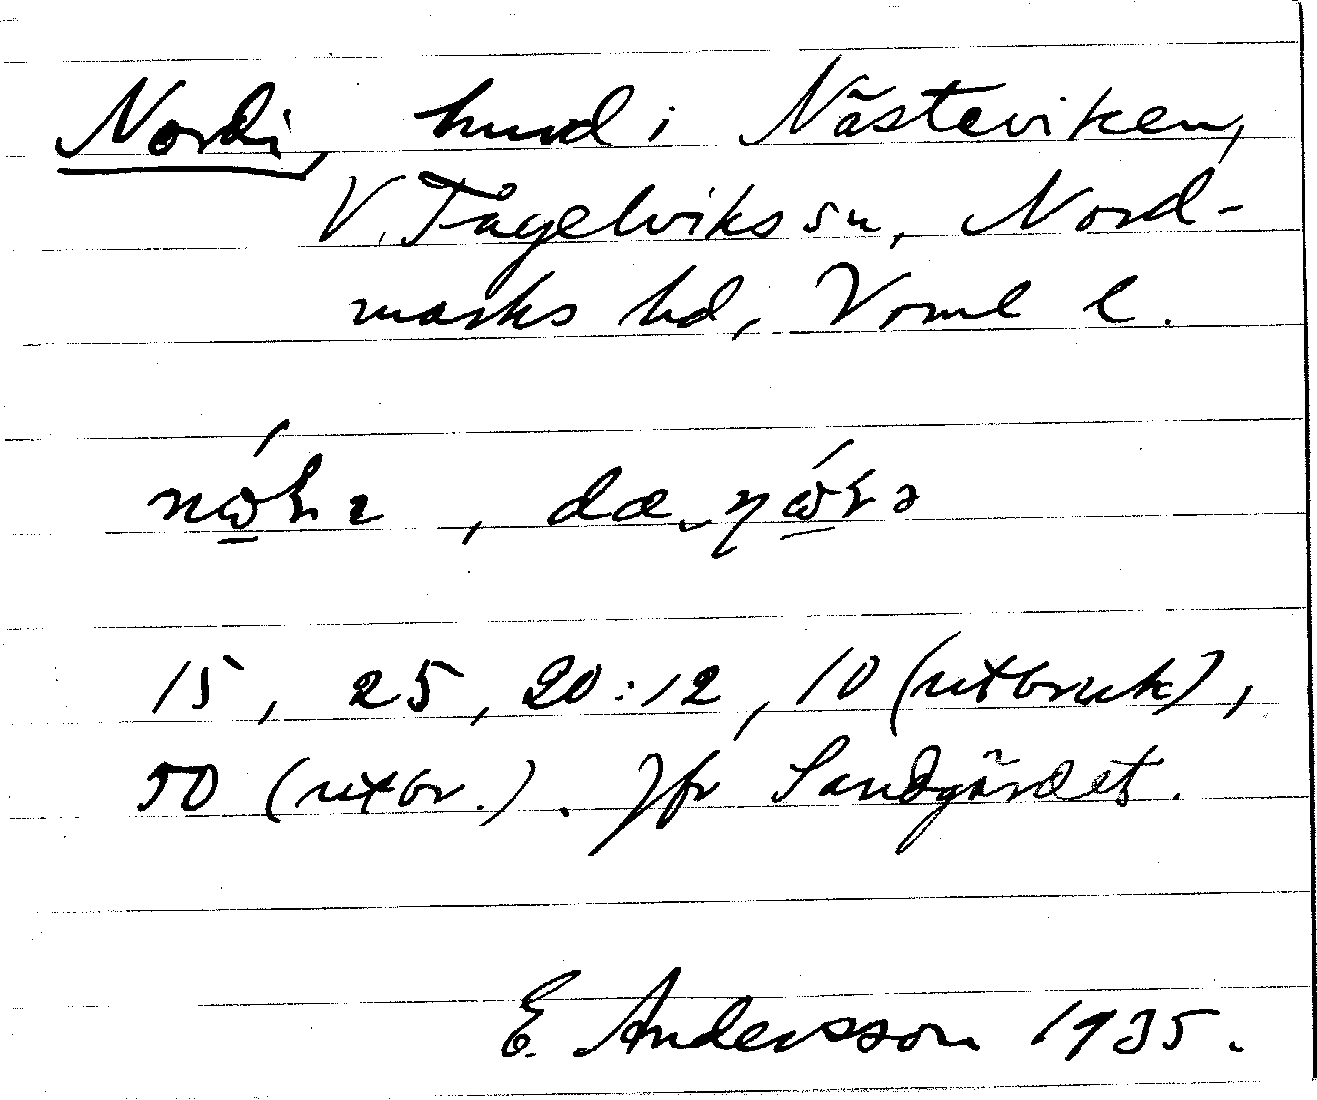 Nordi, hmd i Nästeviken,
V. Fågelviks sn, Nord-
marks hd, Vrml l.
15, 25, 20:12, 10 (utbruk),
50 (utbr.). Jfr Sandgärdet.
E. Andersson 1935.